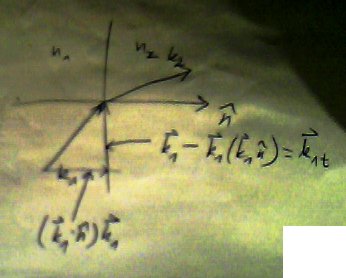 n₁ n₂ k₂
n̂
k⃗₁ - k⃗₁(k⃗₁n̂) = k⃗₁t
k₁
(k⃗₁·n̂)k⃗₁